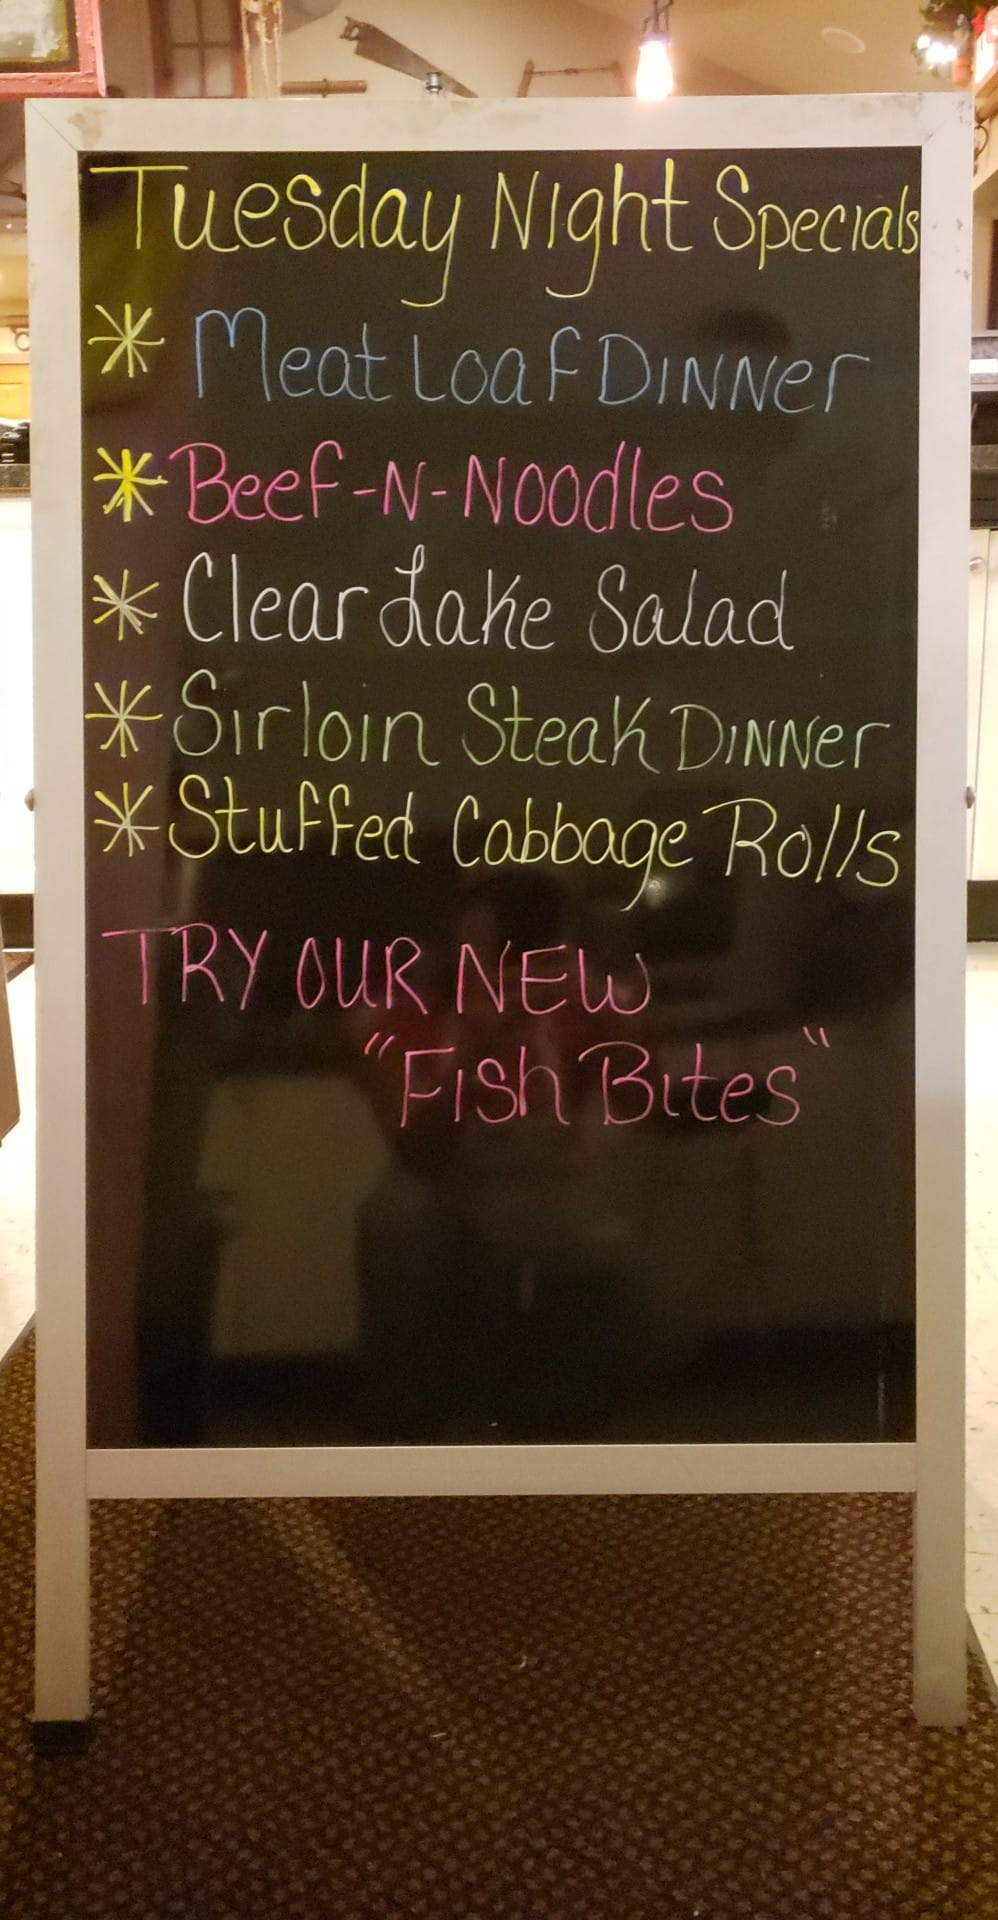 Tuesday Night Specials
* Meat Loaf Dinner
* Beef-N-Noodles
* Clear Lake Salad
* Sirloin Steak Dinner
* Stuffed Cabbage Rolls
TRY OUR NEW
"Fish Bites"